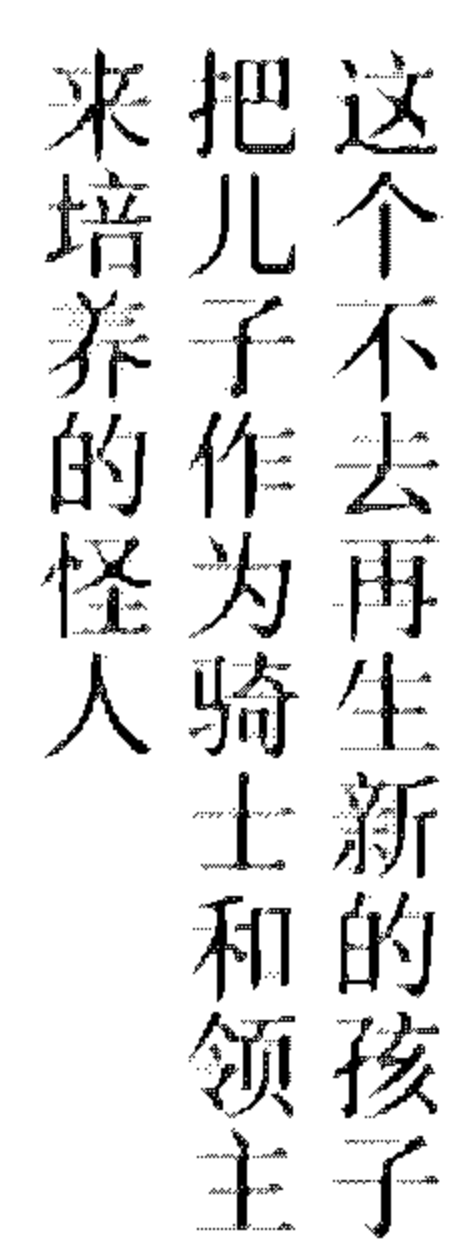 这个不去再生新的孩子
把儿子作为骑士和领主
来培养的怪人